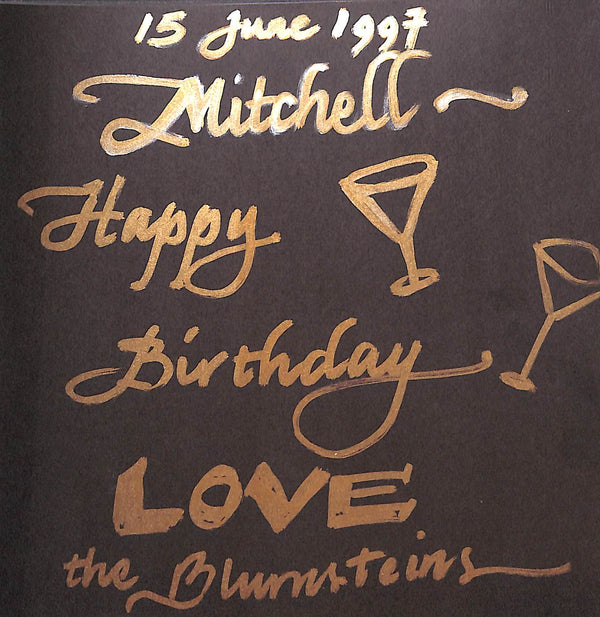 15 June 1997
Mitchell ~
Happy
Birthday
LOVE
the Blumsteins